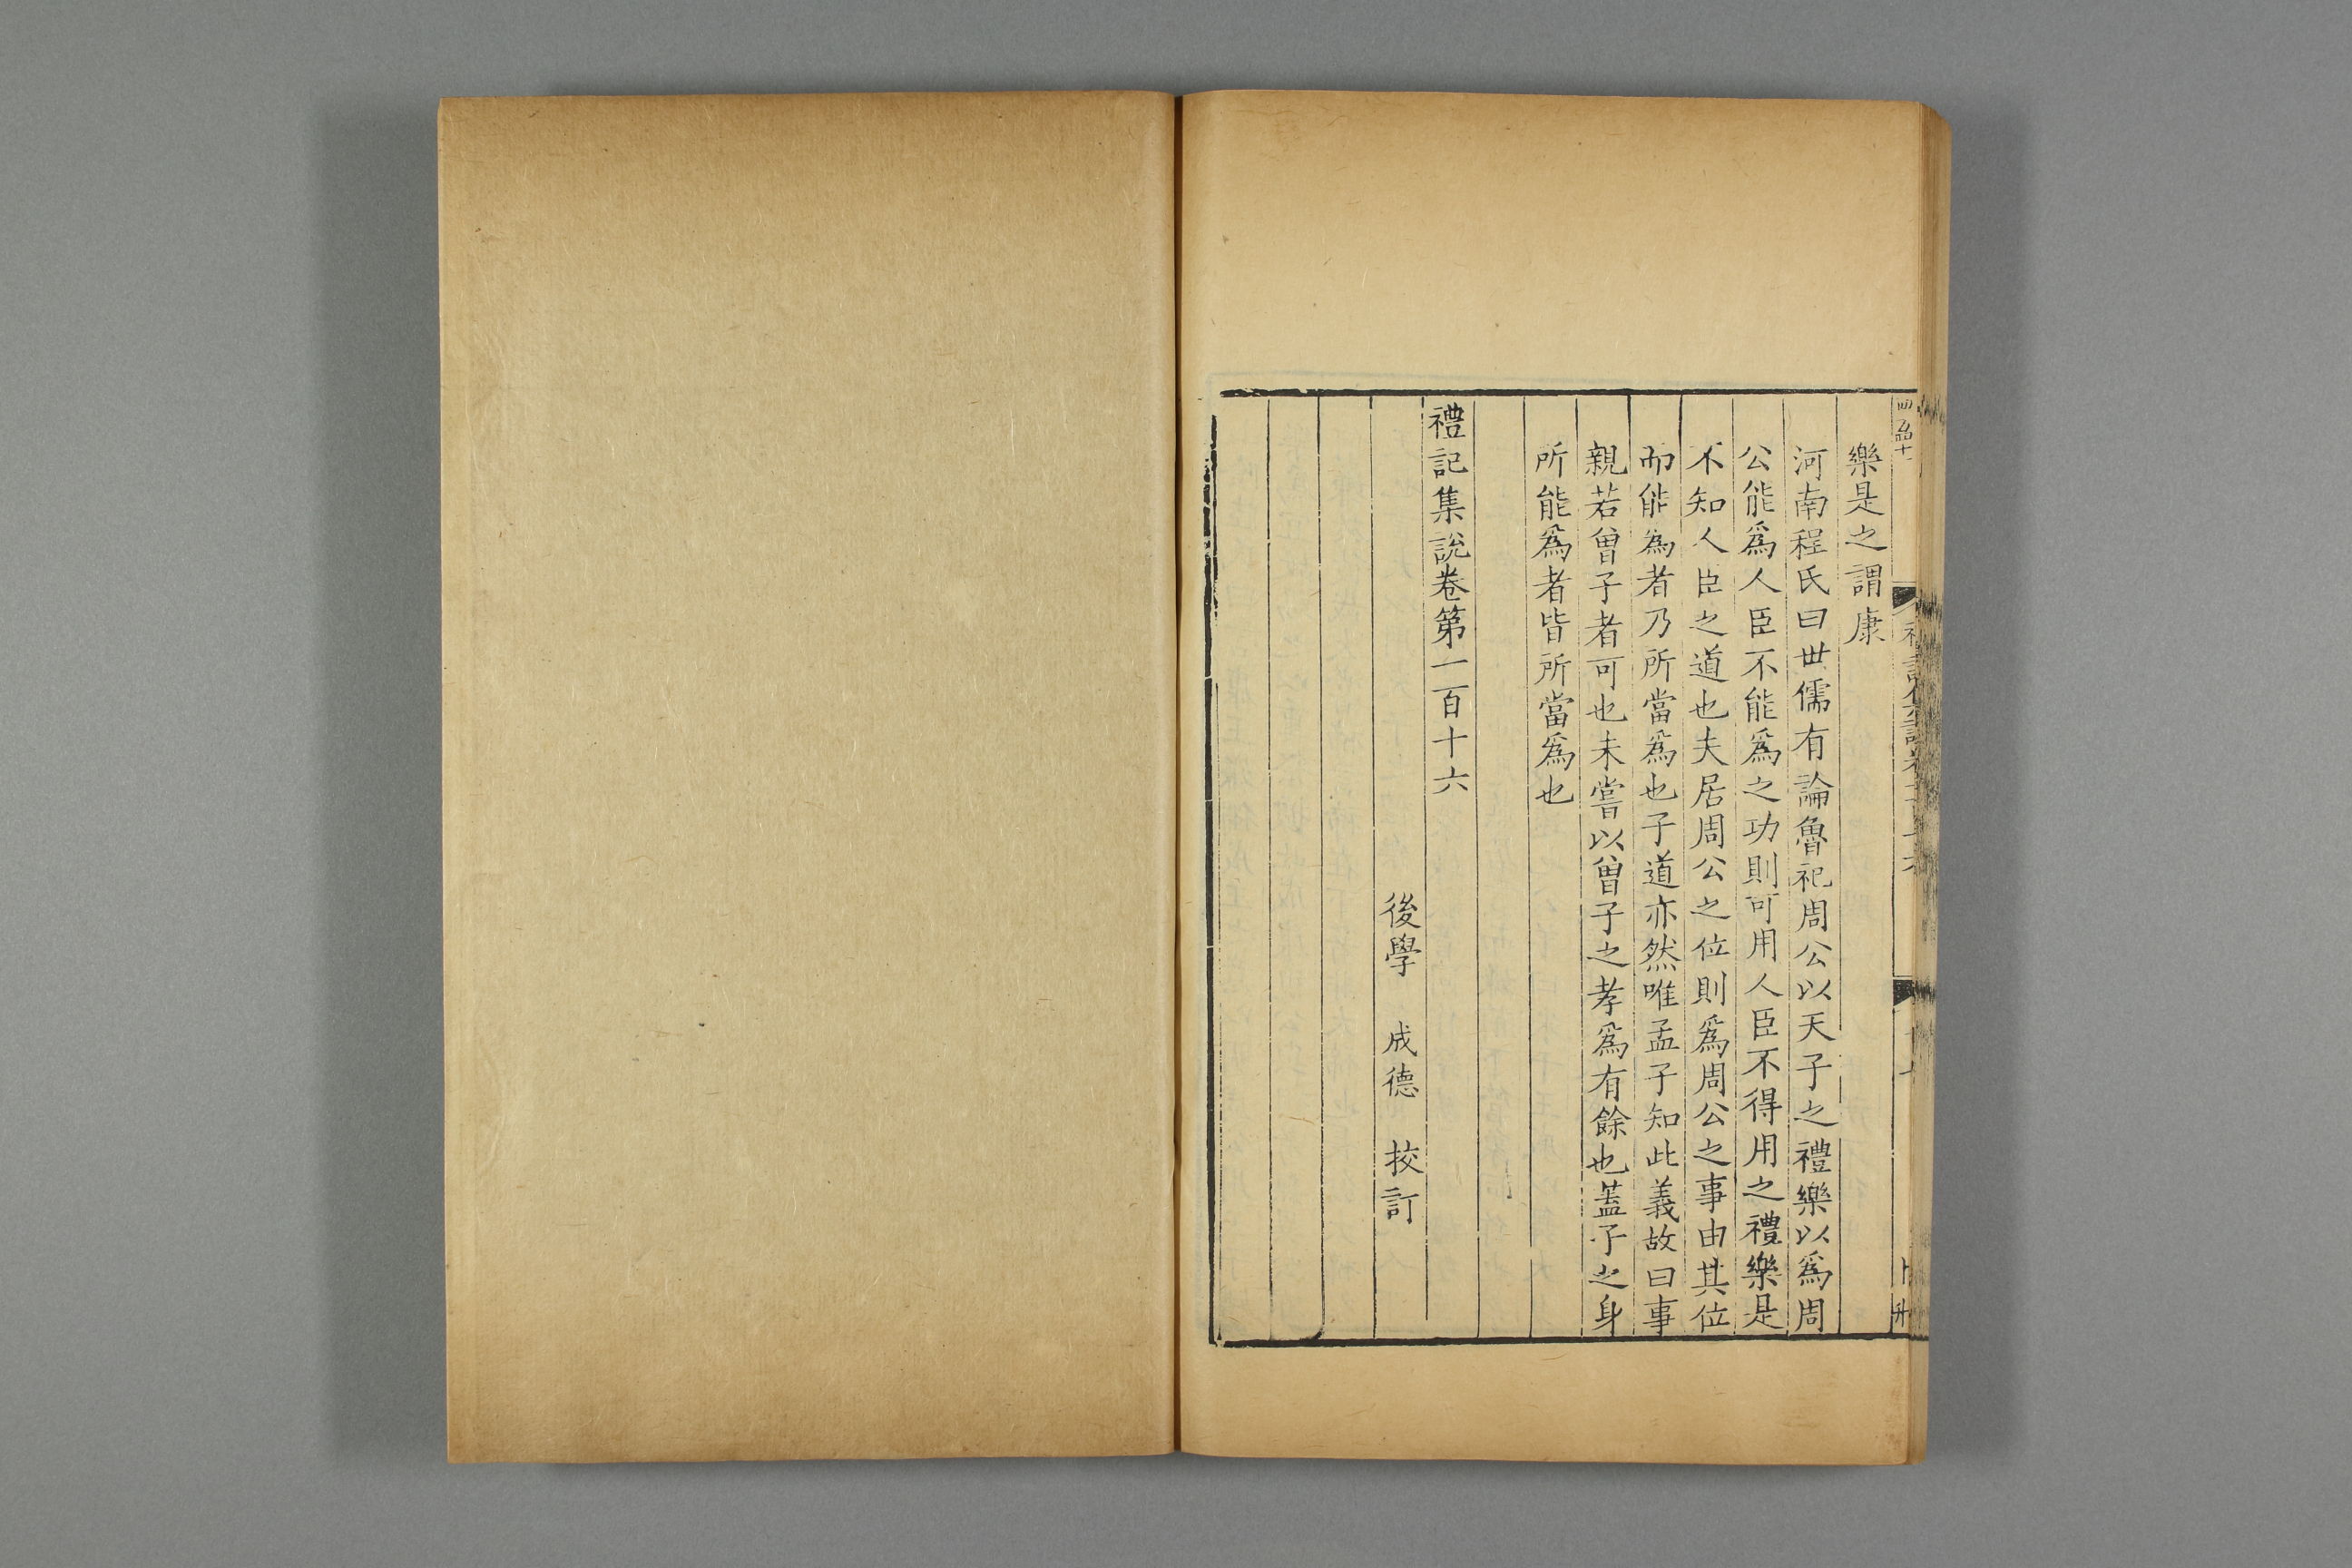 樂是之謂康
河南程氏曰世儒有論魯祀周公以天子之禮樂以爲周
公能爲人臣不能爲之功則可用人臣不得用之禮樂是
不知人臣之道也夫居周公之位則爲周公之事由其位
而能爲者乃所當爲也子道亦然唯孟子知此義故曰事
親若曾子者可也未嘗以曾子之孝爲有餘也蓋子之身
所能爲者皆所當爲也
禮記集說卷第一百十六
後學 成德 挍訂